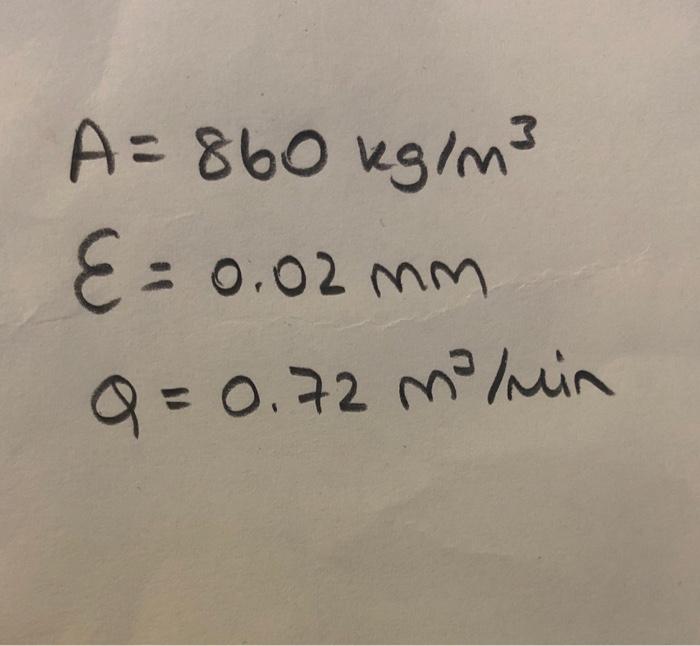 A = 860 kg/m³
Ɛ = 0.02 mm
Q = 0.72 m³/min